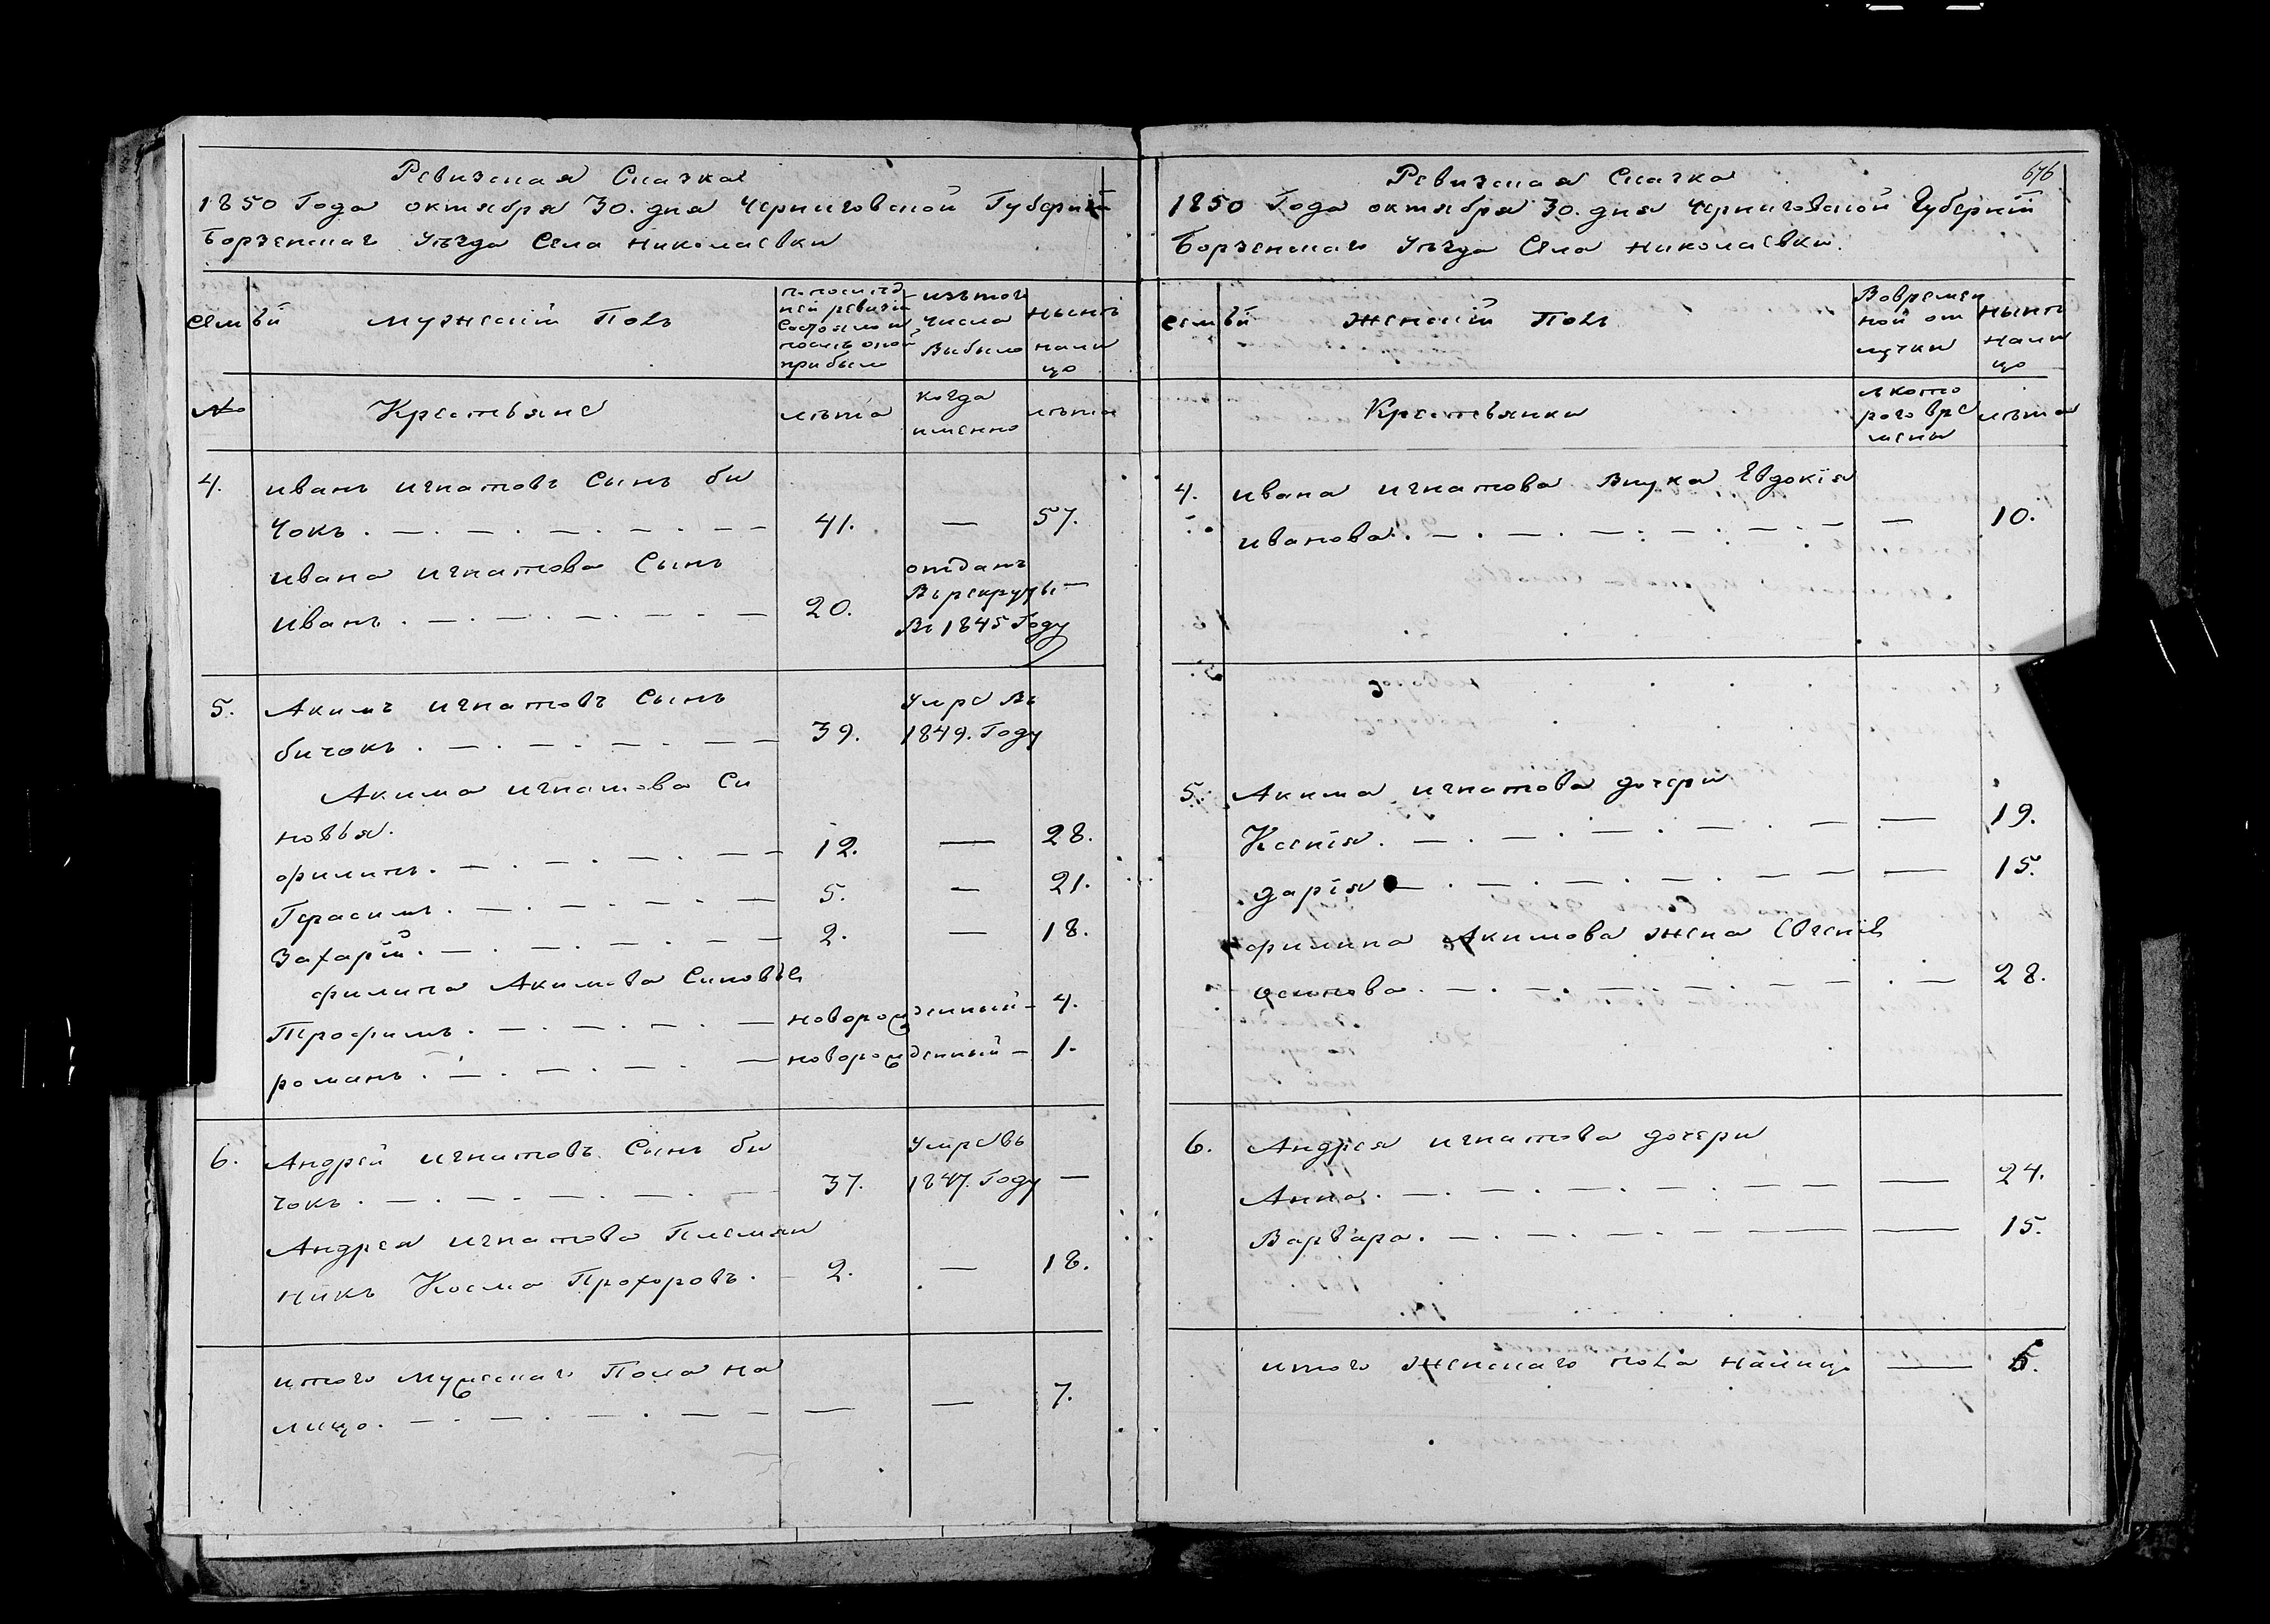 Ревизская Сказка
1850 Года октября 30. дня Черниговской Губернии
Борзенскаго Уезда Села Николаевки
семьи
мужеский Полъ
по послед
ней ревизии
Состояло и
после оной
прибыло
изътого
числа
Выбыло
ныне
нали
цо
№
Крестьяне
лета
когда
именно
лета
4. иванъ игнатовъ Сынъ би
чокъ. 41. — 57.
ивана игнатова Сынъ
иванъ. 20.
отданъ
Върекруты
Въ 1845 Году
5. Акимъ игнатовъ Сынъ
бичокъ. 39.
умре Въ
1849. Году
Акима игнатова Си
новья.
филипъ. 12. — 28.
Герасимъ. 5. — 21.
Захарій. 2. — 18.
филипа Акимова Синовья
Трофимъ. новорожденный — 4.
романъ. новорожденный — 1.
6. Андрей игнатовъ Сынъ би
чокъ. 37.
Умре въ
1847. Году —
Андрея игнатова Племян
никъ Косма Прохоровъ. 2. — 18.
итого мужескаго Пола на
лицо. — — 7.
676
Ревизская Сказка
1850 Года октября 30. дня Черниговской Губерніи
Борзенскаго Уезда Села николаевки.
семьи
Женский Полъ
Вовремен
ной от
лучки
ныне
нали
цо
Крестьянки
съкото
рого вре
мени
лета
4. ивана игнатова Внука Евдокія
иванова. — 10.
5. Акима игнатова дочери
Ксенія. — 19.
дарія — 15.
филипа Акимова жена
— 28.
6. Андрея игнатова дочери
Анна. — 24.
Варвара. — 15.
итого Женскаго пола налицо — 6.